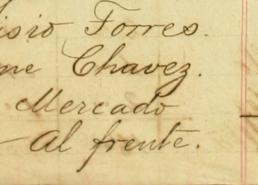 isio Torres.
ne Chavez.
Mercado
Al frente.